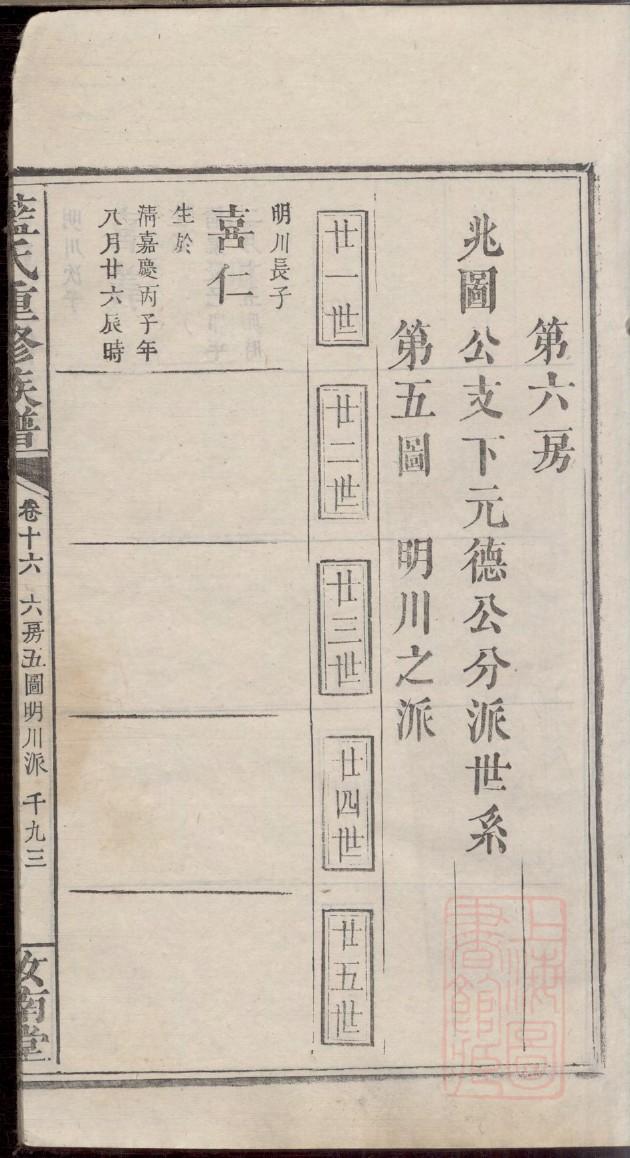 第六房
兆圖公支下元德公分派世系
第五圖　明川之派
廿一世
廿二世
廿三世
廿四世
廿五世
明川長子
喜仁
生於
清嘉慶丙子年
八月廿六辰時
藍氏重修族譜
卷十六　六房五圖明川派　千九三
汝南堂
上海圖書館藏